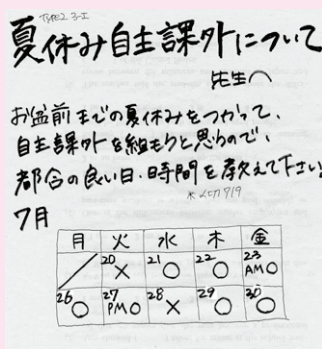 TYPE2 3-I
夏休み自主課外について
先生へ
お盆前までの夏休みをつかって、
自主課外を組もうと思うので、
都合の良い日・時間を教えて下さい
※〆切 7/9
7月
月 火 水 木 金
／ 20 × 21 ○ 22 ○ 23 AM○
26 ○ 27 PM○ 28 × 29 ○ 30 ○